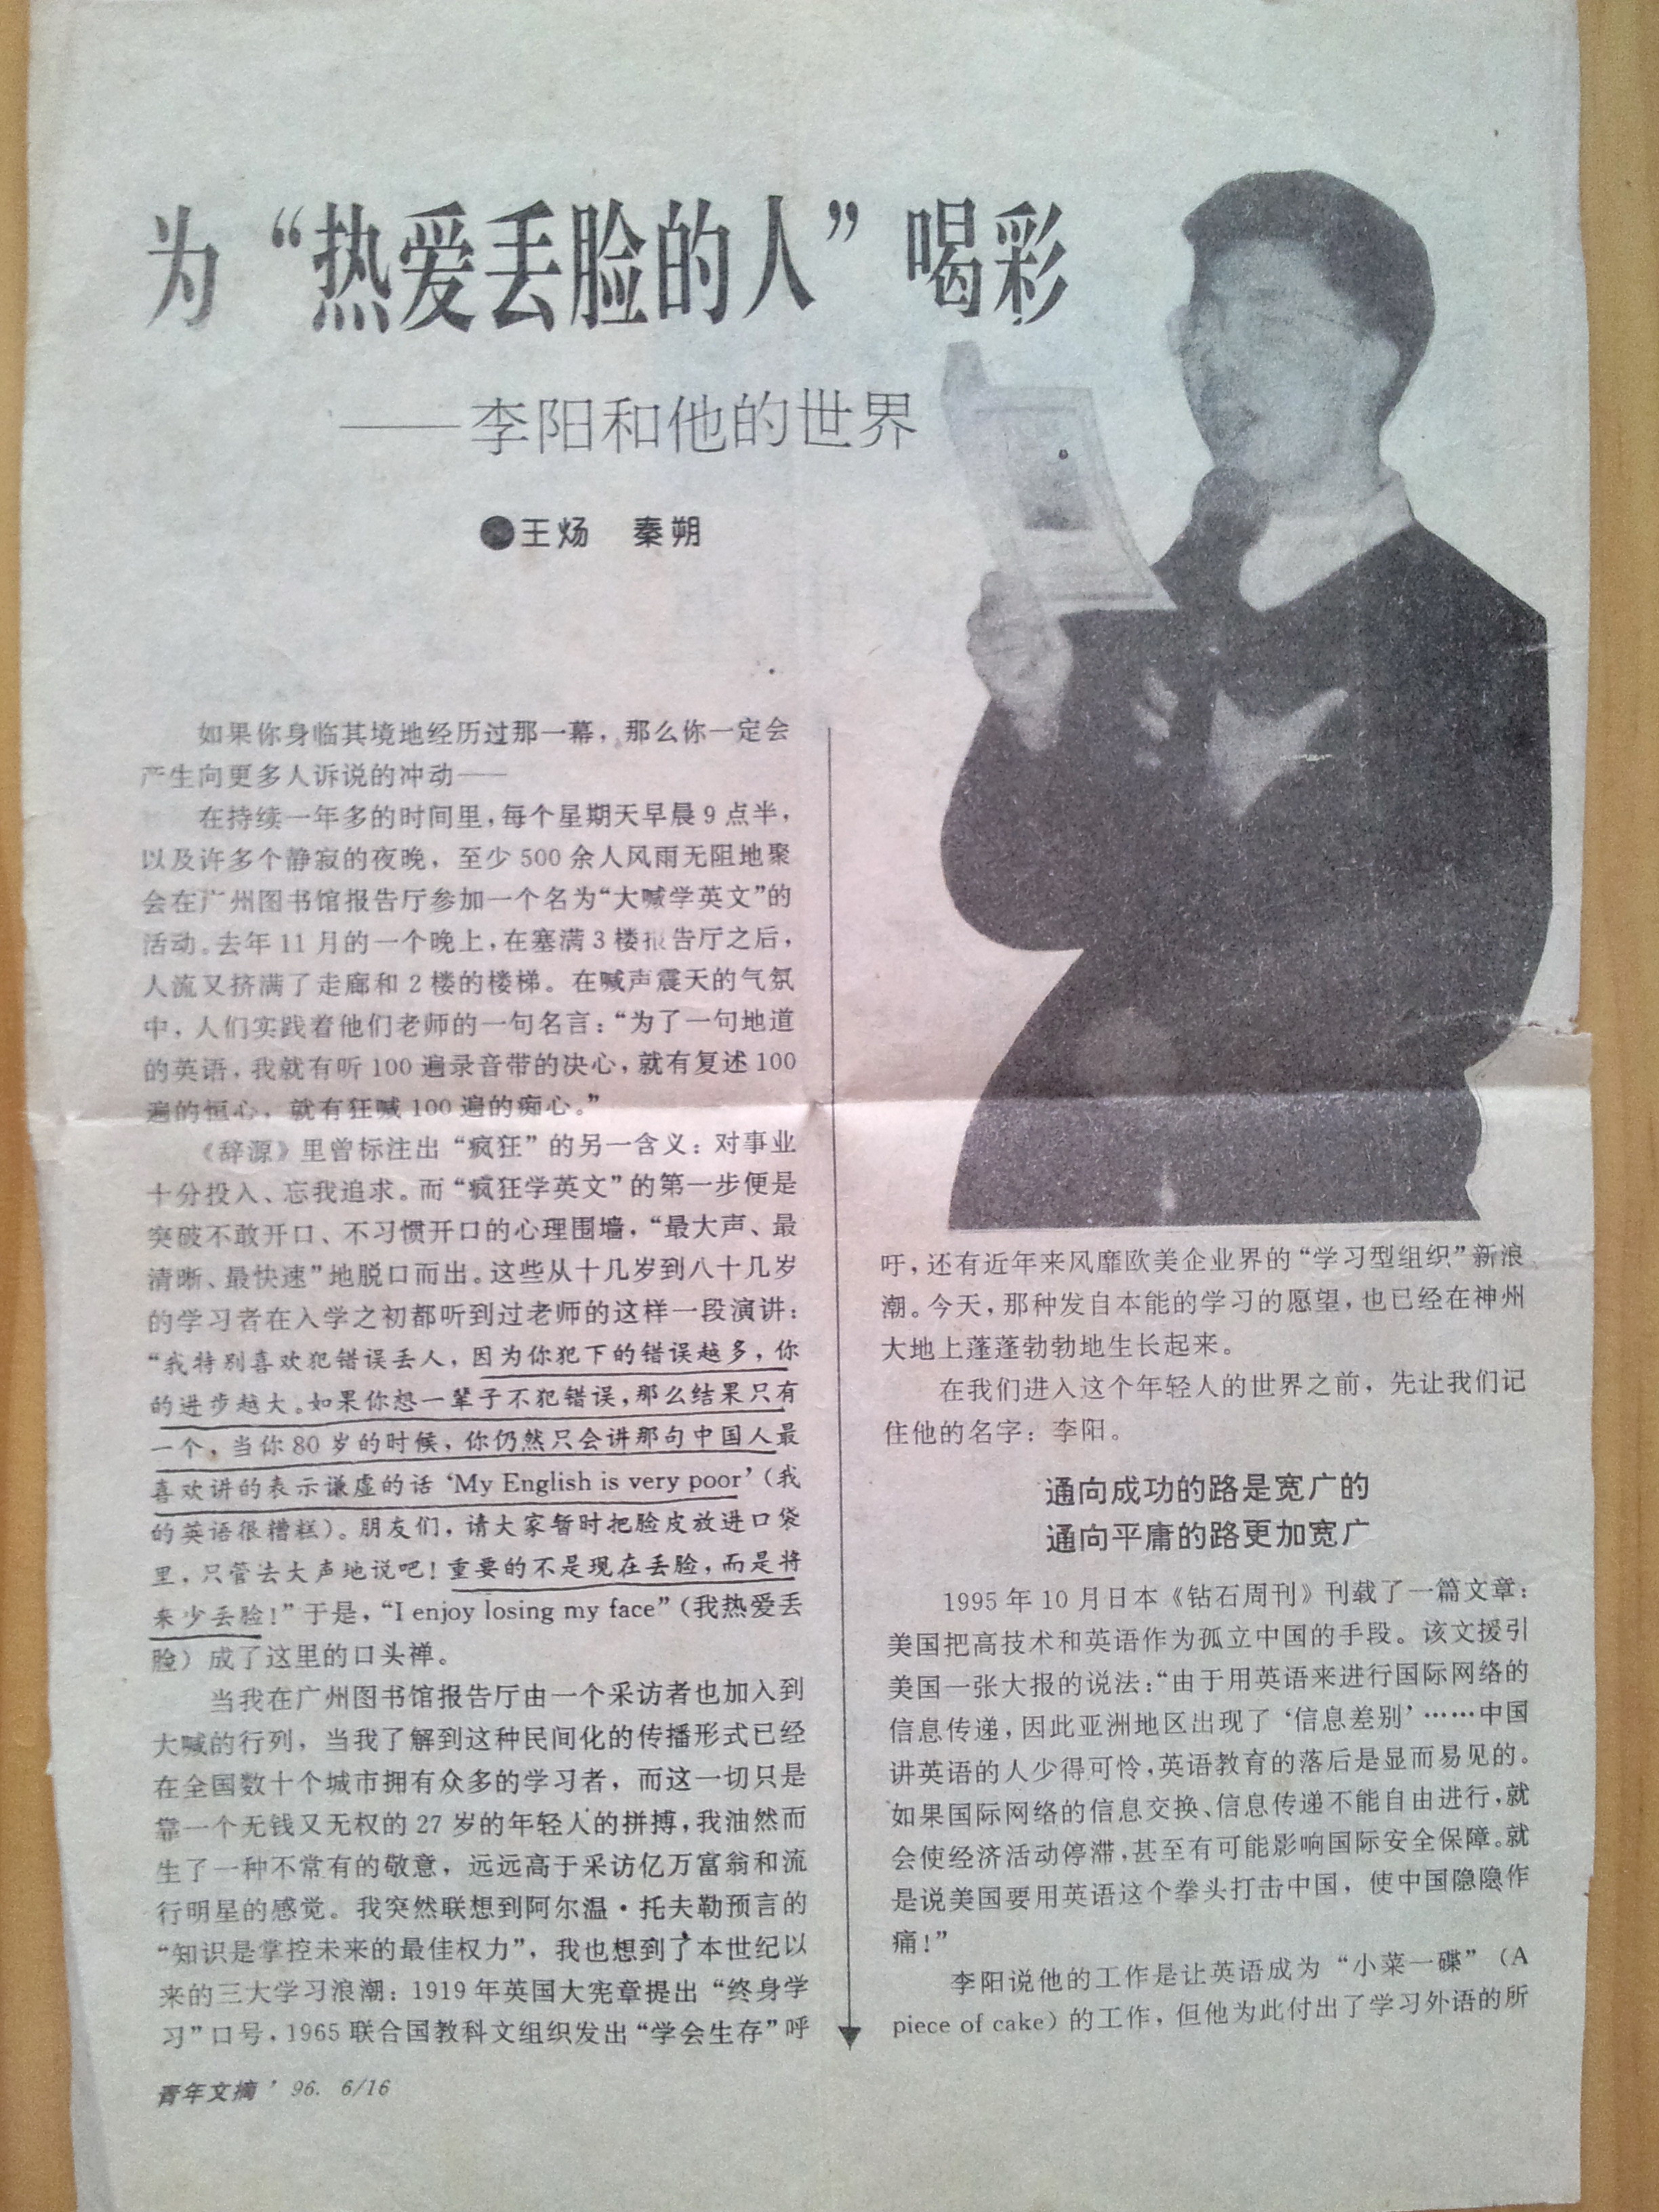 为“热爱丢脸的人”喝彩
——李阳和他的世界
●王炀 秦朔
如果你身临其境地经历过那一幕，那么你一定会
产生向更多人诉说的冲动——
在持续一年多的时间里，每个星期天早晨9点半，
以及许多个静寂的夜晚，至少500余人风雨无阻地聚
会在广州图书馆报告厅参加一个名为“大喊学英文”的
活动。去年11月的一个晚上，在塞满3楼报告厅之后，
人流又挤满了走廊和2楼的楼梯。在喊声震天的气氛
中，人们实践着他们老师的一句名言：“为了一句地道
的英语，我就有听100遍录音带的决心，就有复述100
遍的恒心，就有狂喊100遍的痴心。”
《辞源》里曾标注出“疯狂”的另一含义：对事业
十分投入、忘我追求。而“疯狂学英文”的第一步便是
突破不敢开口、不习惯开口的心理围墙，“最大声、最
清晰、最快速”地脱口而出。这些从十几岁到八十几岁
的学习者在入学之初都听到过老师的这样一段演讲：
“我特别喜欢犯错误丢人，因为你犯下的错误越多，你
的进步越大。如果你想一辈子不犯错误，那么结果只有
一个，当你80岁的时候，你仍然只会讲那句中国人最
喜欢讲的表示谦虚的话‘My English is very poor’（我
的英语很糟糕）。朋友们，请大家暂时把脸皮放进口袋
里，只管去大声地说吧！重要的不是现在丢脸，而是将
来少丢脸！”于是，“I enjoy losing my face”（我热爱丢
脸）成了这里的口头禅。
当我在广州图书馆报告厅由一个采访者也加入到
大喊的行列，当我了解到这种民间化的传播形式已经
在全国数十个城市拥有众多的学习者，而这一切只是
靠一个无钱又无权的27岁的年轻人的拼搏，我油然而
生了一种不常有的敬意，远远高于采访亿万富翁和流
行明星的感觉。我突然联想到阿尔温·托夫勒预言的
“知识是掌控未来的最佳权力”，我也想到了本世纪以
来的三大学习浪潮：1919年英国大宪章提出“终身学
习”口号，1965联合国教科文组织发出“学会生存”呼
吁，还有近年来风靡欧美企业界的“学习型组织”新浪
潮。今天，那种发自本能的学习的愿望，也已经在神州
大地上蓬蓬勃勃地生长起来。
在我们进入这个年轻人的世界之前，先让我们记
住他的名字：李阳。
通向成功的路是宽广的
通向平庸的路更加宽广
1995年10月日本《钻石周刊》刊载了一篇文章：
美国把高技术和英语作为孤立中国的手段。该文援引
美国一张大报的说法：“由于用英语来进行国际网络的
信息传递，因此亚洲地区出现了‘信息差别’……中国
讲英语的人少得可怜，英语教育的落后是显而易见的。
如果国际网络的信息交换、信息传递不能自由进行，就
会使经济活动停滞，甚至有可能影响国际安全保障。就
是说美国要用英语这个拳头打击中国，使中国隐隐作
痛！”
李阳说他的工作是让英语成为“小菜一碟”（A
piece of cake）的工作，但他为此付出了学习外语的所
青年文摘’96. 6/16